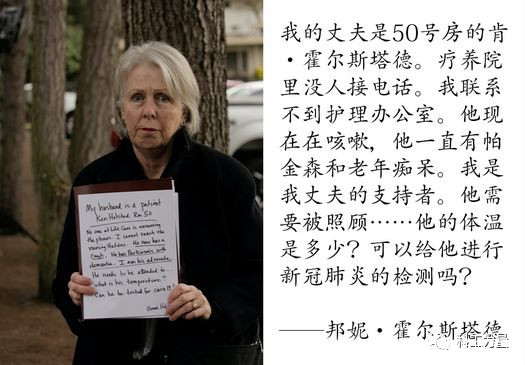 My husband is a patient
Ken Holstad Rm 50
No one at Life Care is answering
the phones. I cannot reach the
nursing stations. He now has a
cough. He has Parkinson's with
dementia. I am his advocate.
He needs to be attended to...
what is his temperature?
Can he be tested for covid 19?
我的丈夫是50号房的肯
·霍尔斯塔德。疗养院
里没人接电话。我联系
不到护理办公室。他现
在在咳嗽，他一直有帕
金森和老年痴呆。我是
我丈夫的支持者。他需
要被照顾……他的体温
是多少？可以给他进行
新冠肺炎的检测吗？
——邦妮·霍尔斯塔德